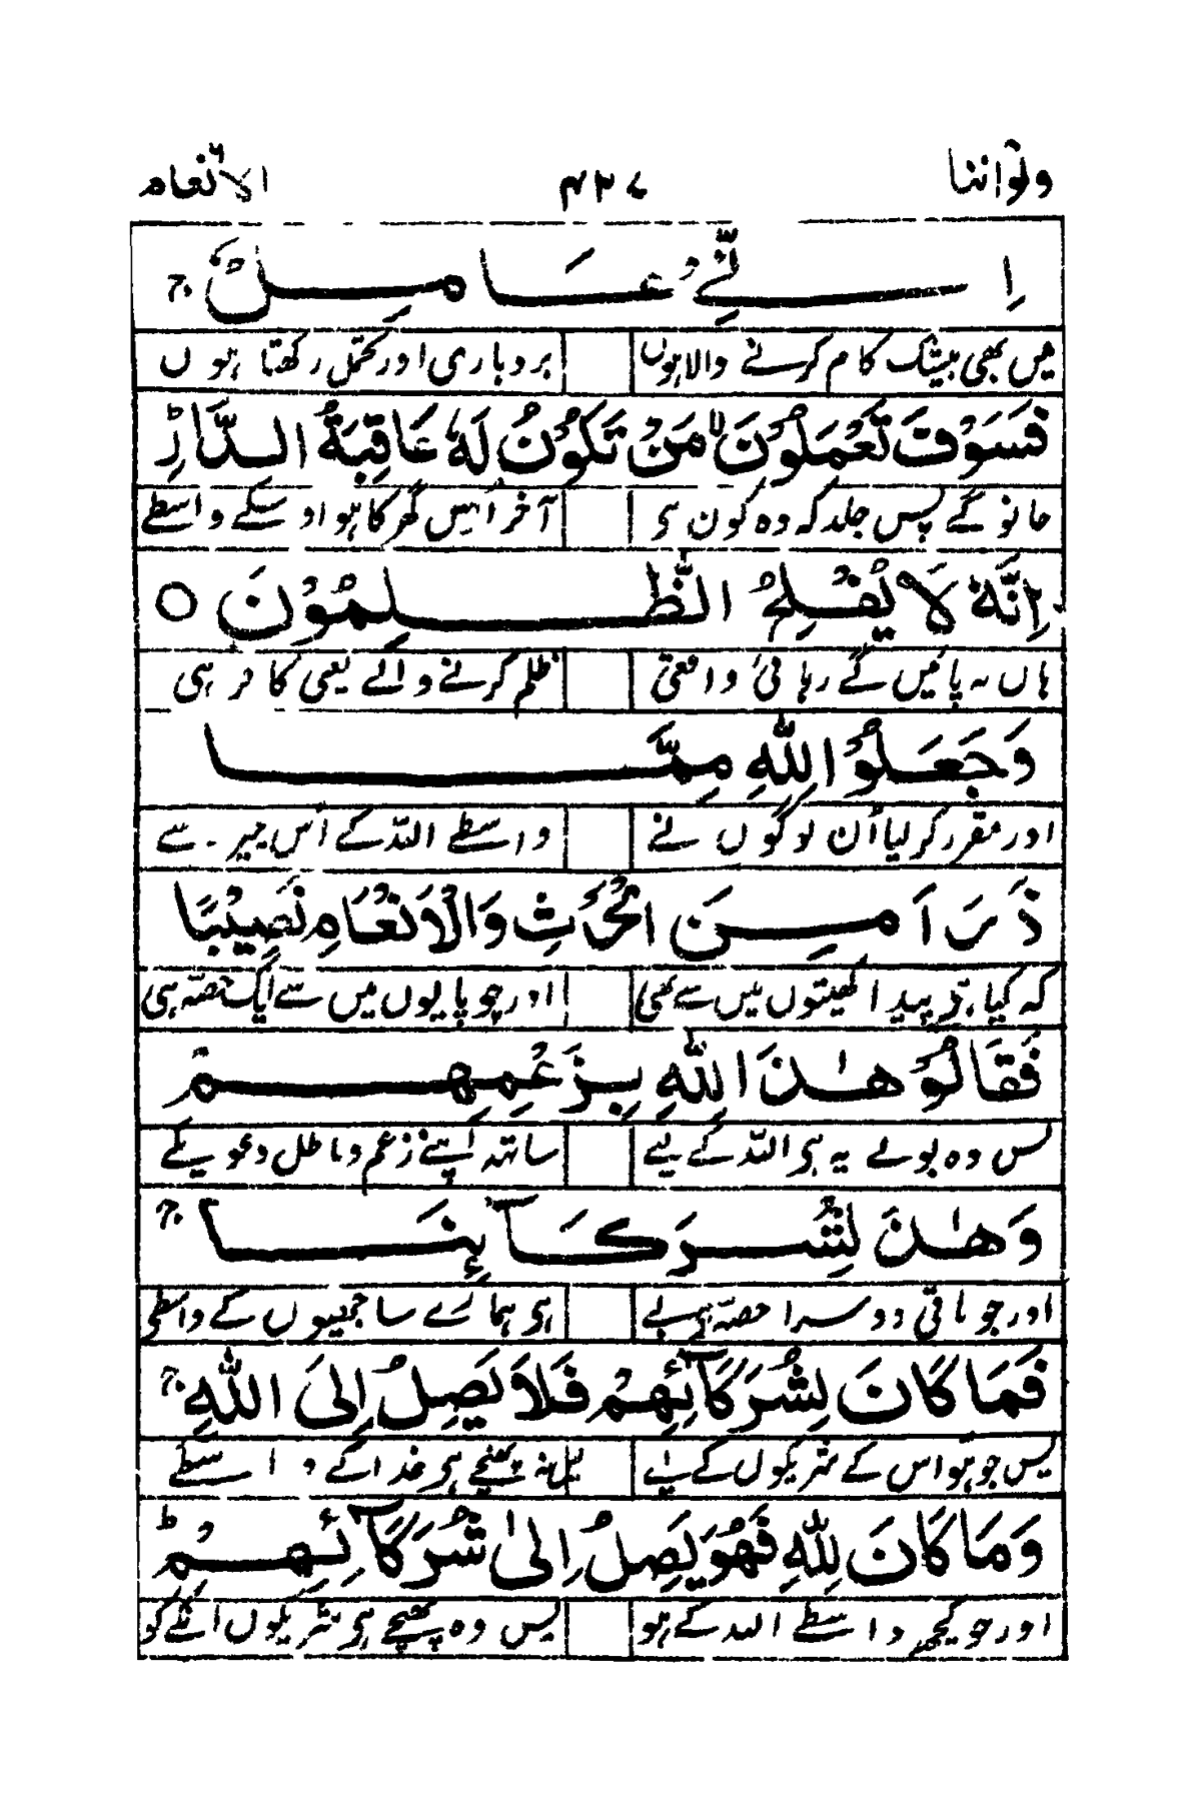 ولواننا ۴۳۷ الانعام ٦
اِنِّیْ عَامِلٌ ۚ
میں بھی بیشک کام کرنے والا ہوں بردباری اور تحمل رکھتا ہوں
فَسَوْفَ تَعْمَلُوْنَ ۙ مَنْ تَكُوْنُ لَهٗ عَاقِبَةُ الدَّارِ ؕ
جانو گے پس جلد کہ وہ کون ہی آخر اُس گھر کا ہو اوسکے واسطے
اِنَّهٗ لَا یُفْلِحُ الظّٰلِمُوْنَ ○
ہاں نہ پائیں گے رہائی واقعی ظلم کرنے والے یعنی کافر ہی
وَجَعَلُوْا لِلّٰهِ مِمَّا
اور مقرر کر لیا اُن لوگوں نے واسطے اللہ کے اُس چیز سے
ذَرَاَ مِنَ الْحَرْثِ وَالْاَنْعَامِ نَصِیْبًا
کہ کیا ہے پیدا کھیتوں میں سے بھی اور چوپایوں میں سے ایک حصّہ ہی
فَقَالُوْا هٰذَا لِلّٰهِ بِزَعْمِهِمْ
پس وہ بولے یہ ہی اللہ کے لیے ساتھ اپنے زعم و باطل دعوی کے
وَهٰذَا لِشُرَكَآئِنَا ۚ
اور جو باقی دوسرا حصّہ ہی ہمارے ساجھیوں کے واسطے
فَمَا كَانَ لِشُرَكَآئِهِمْ فَلَا یَصِلُ اِلَی اللّٰهِ ۚ
پس جو ہو اس کے شریکوں کے لیے پس نہ پہنچے ہی خدا کے واسطے
وَمَا كَانَ لِلّٰهِ فَهُوَ یَصِلُ اِلٰی شُرَكَآئِهِمْ ؕ
اور جو کچھ واسطے اللہ کے ہو پس وہ پہنچے ہی شریکوں انکے کو